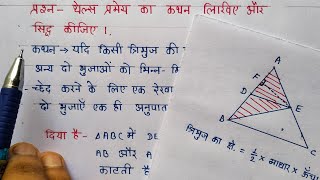 प्रश्न- थेल्स प्रमेय का कथन लिखिए और
सिद्ध कीजिए।
कथन → यदि किसी त्रिभुज की
अन्य दो भुजाओं को भिन्न-
छेद करने के लिए एक रेखा
दो भुजाएँ एक ही अनुपात
दिया है- ΔABC में DE
AB और A
काटती है
A
F
D
E
B
C
त्रिभुज का क्षे. = 1/2 × आधार × ऊँ